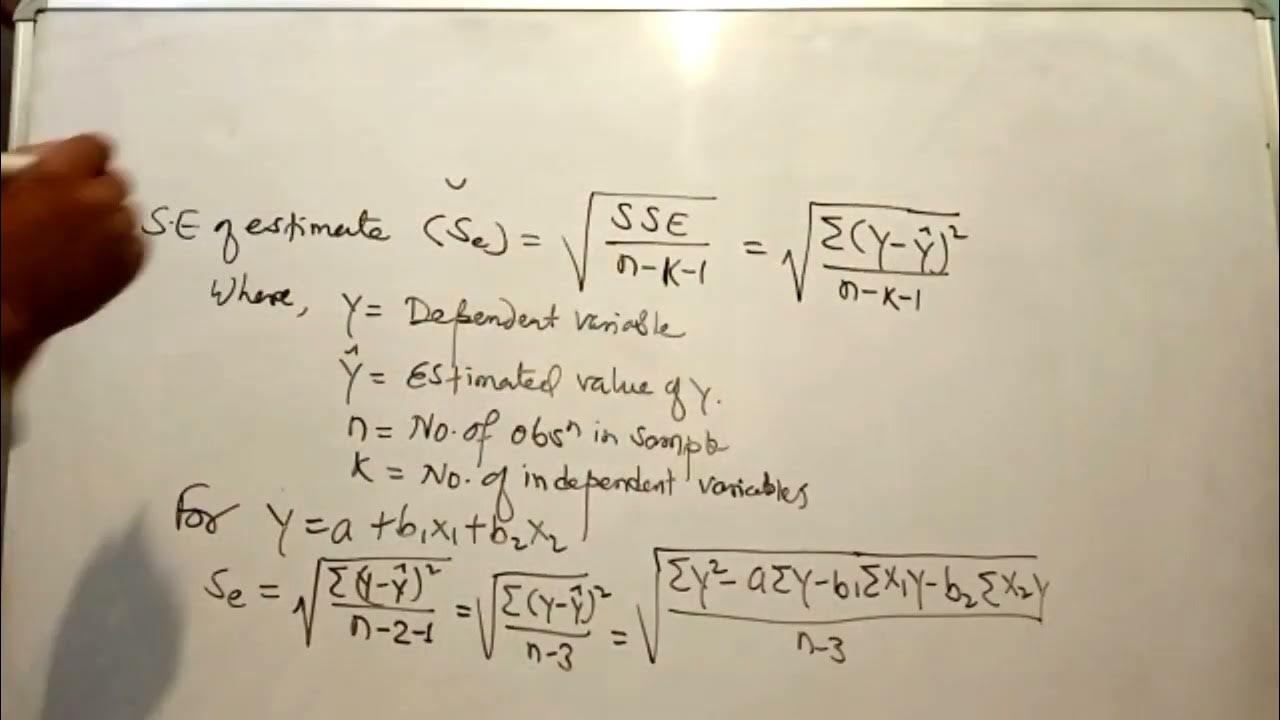 S.E of estimate (Se) = √(SSE/(n-k-1)) = √(Σ(Y-Ŷ)²/(n-k-1))
Where, Y = Dependent variable
Ŷ = Estimated value of Y.
n = No. of obsⁿ in sample
k = No. of independent variables
For Y = a + b₁x₁ + b₂x₂
Se = √(Σ(Y-Ŷ)²/(n-2-1)) = √(Σ(Y-Ŷ)²/(n-3)) = √((ΣY² - aΣY - b₁ΣX₁Y - b₂ΣX₂Y)/(n-3))